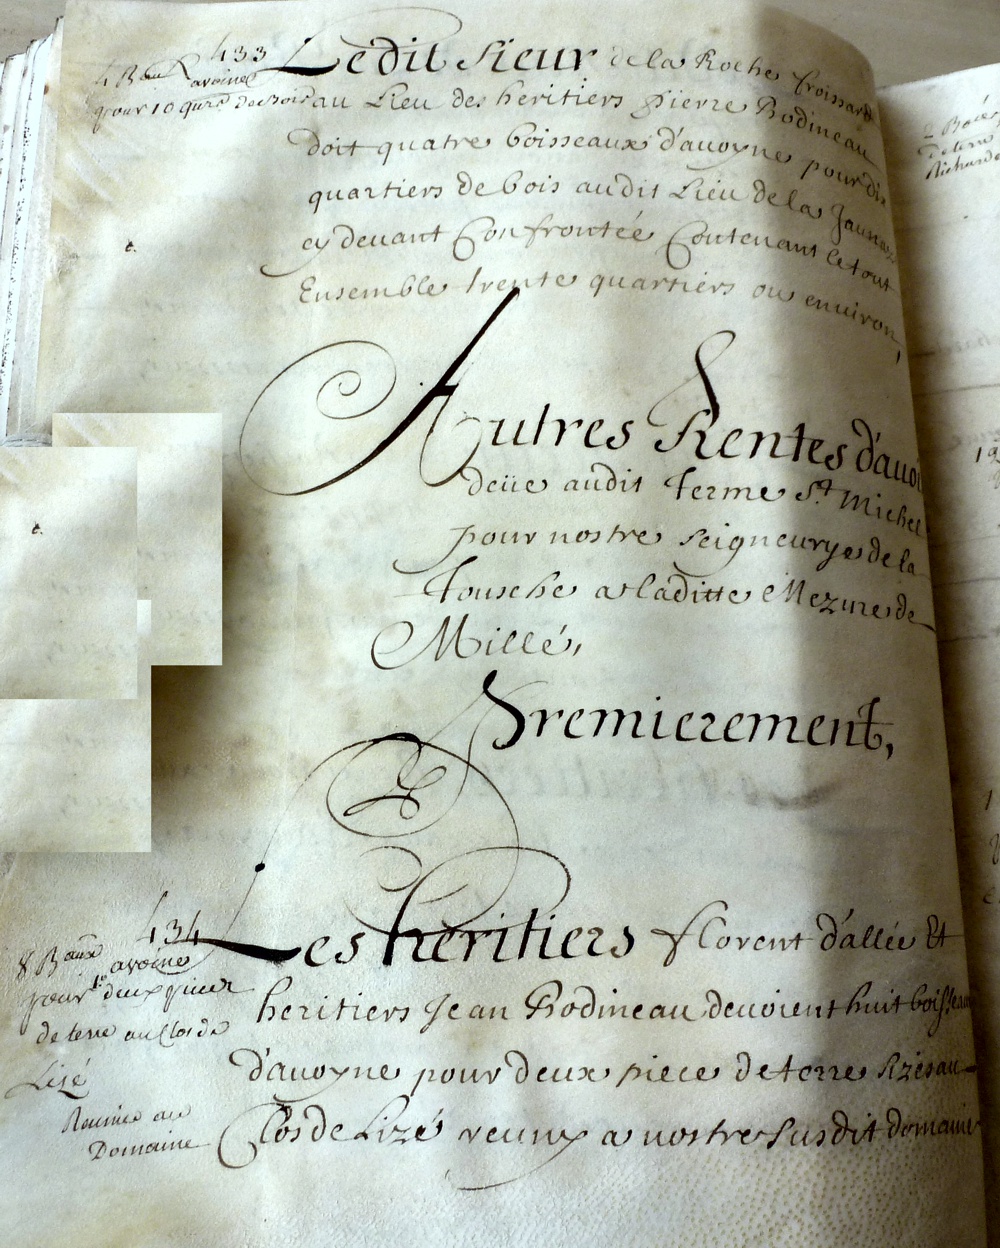 433
4 B.aux avoine
pour 10 qures de bois
Ledit sieur de la Roche froissard
au Lieu des heritiers pierre Bodineau
doit quatre boisseaux d'avoyne pour dix
quartiers de bois audit Lieu de la Jaunais
cy devant Confrontée Contenant le tout
Ensemble trente quartiers ou environ,
Autres Rentes d'avoi
deüe audit terme St Michel
pour nostre seigneurye de la
Tousche a laditte Mezure de
Millé,
Premierement,
434
8 B.aux avoine
pour deux pieces
de terre au Clos de
Lizé
Reunie au
Domaine
Les heritiers florent d'allée Et
heritiers Jean Bodineau devoient huit boisseaux
d'avoyne pour deux piece de terre sizés au
Clos de Lizé reuny a nostre susdit domaine
2 B
de terre
Richard